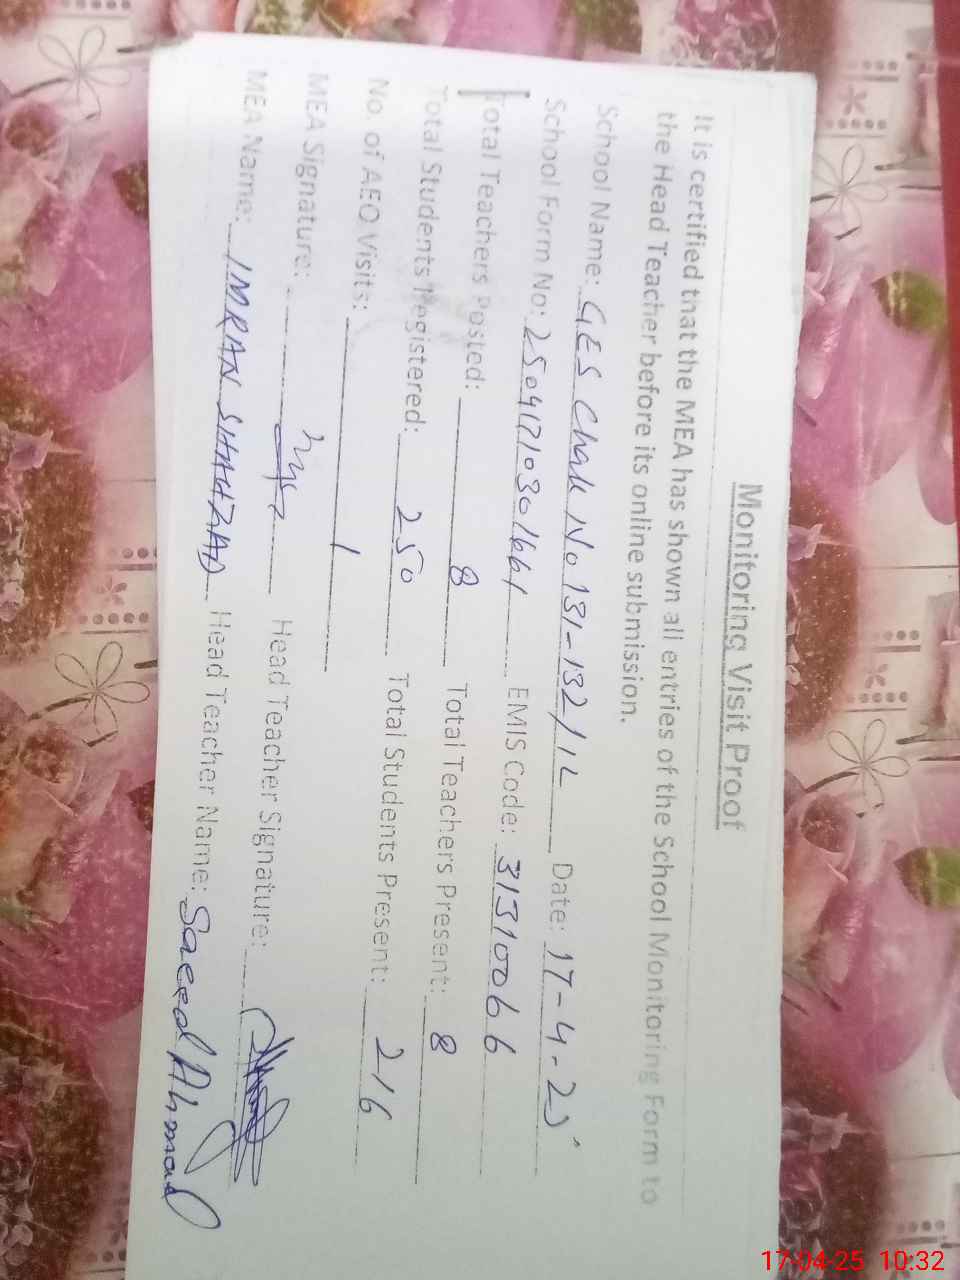 Monitoring Visit Proof
It is certified that the MEA has shown all entries of the School Monitoring Form to
the Head Teacher before its online submission.
School Name: GES Chak No 131-132/1L Date: 17-4-25
School Form No: EMIS Code: 31310066
Total Teachers Posted: 8 Total Teachers Present: 8
Total Students Registered: 250 Total Students Present: 216
No. of AEO Visits: 1
MEA Signature: Head Teacher Signature:
MEA Name: IMRAN SHAHZAD Head Teacher Name: Saeed Ahmad
17-04-25 10:32